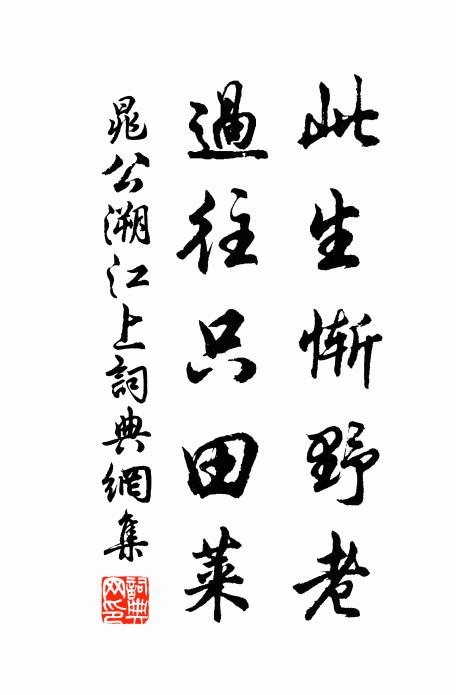 此生慚野老
過往只田萊
晁公溯江上詞典網集
詞典网印